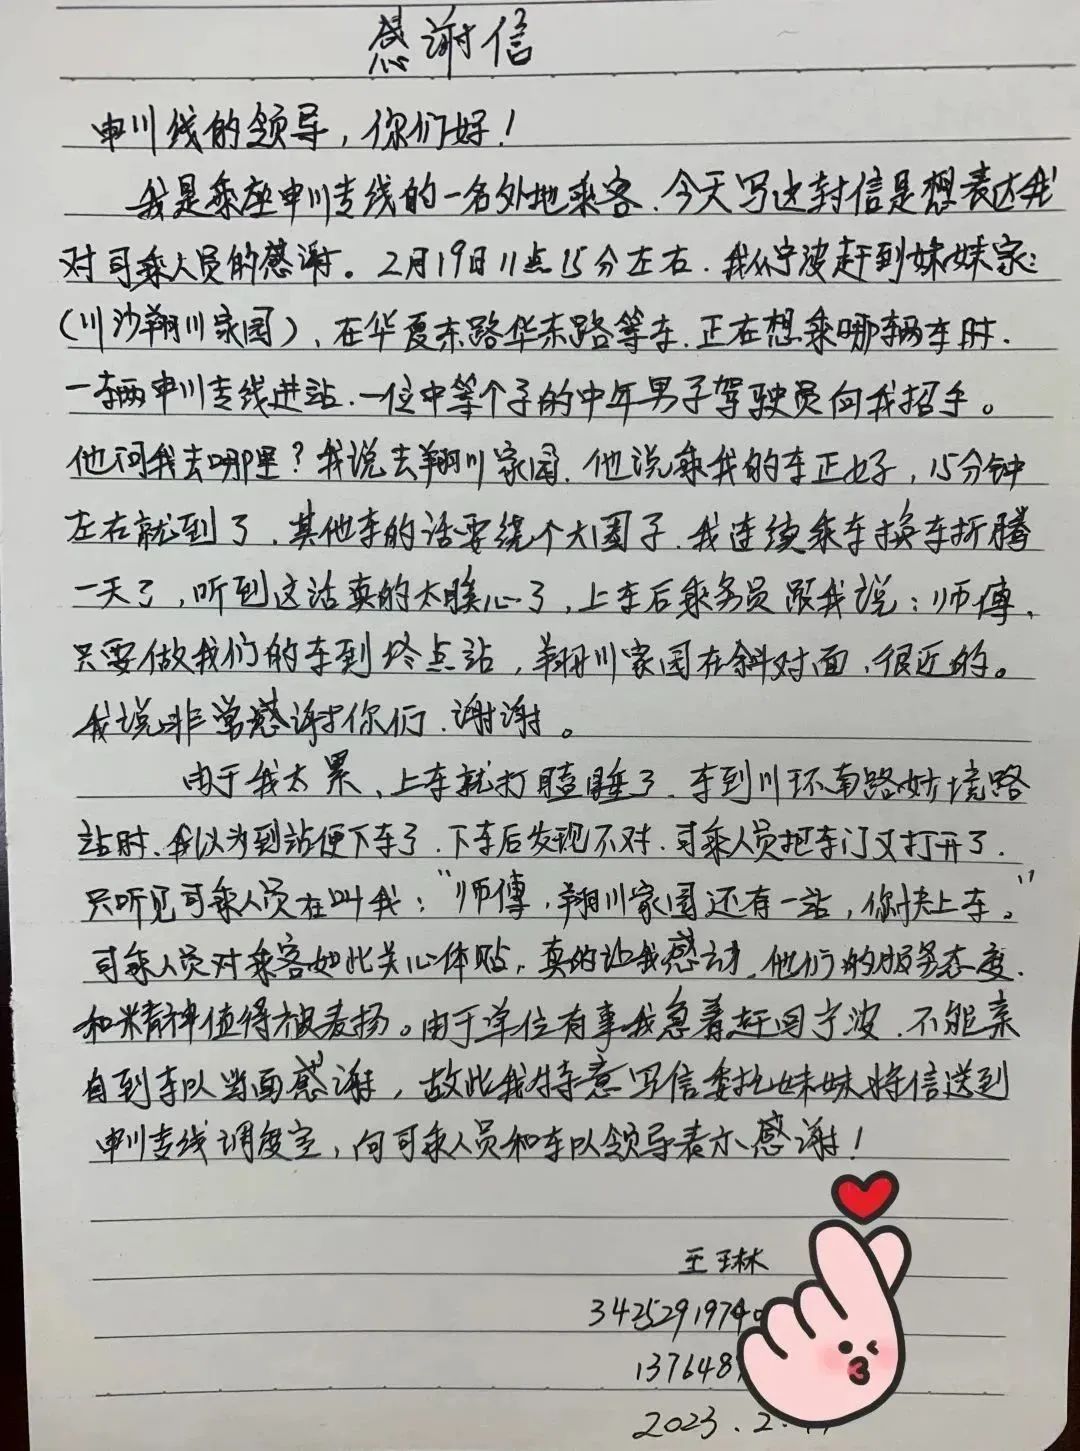 感谢信
申川线的领导，你们好！
我是乘座申川专线的一名外地乘客、今天写这封信是想表达我
对司乘人员的感谢。2月19日11点15分左右、我从宁波赶到妹妹家：
（川沙翔川家园）、在华夏东路华东路等车、正在想乘哪辆车时、
一辆申川专线进站、一位中等个子的中年男子驾驶员向我招手。
他问我去哪里？我说去翔川家园、他说乘我的车正好，15分钟
左右就到了、其他车的话要绕个大圈子、我连续乘车换车折腾
一天了，听到这话真的太暖心了，上车后乘务员跟我说：师傅、
只要做我们的车到终点站，翔川家园在斜对面、很近的。
我说非常感谢你们、谢谢。
由于我太累、上车就打瞌睡了、车到川环南路妙境路
站时、我以为到站便下车了、下车后发现不对、司乘人员把车门又打开了、
只听见司乘人员在叫我：“师傅，翔川家园还有一站，你快上车。”
司乘人员对乘客如此关心体贴，真的让我感动，他们的服务态度、
和精神值得被表扬。由于单位有事我急着赶回宁波、不能亲
自到车队当面感谢，故此我特意写信委托妹妹将信送到
申川专线调度室，向司乘人员和车队领导表示感谢！
王琳
3425291974
137648
2023.2.